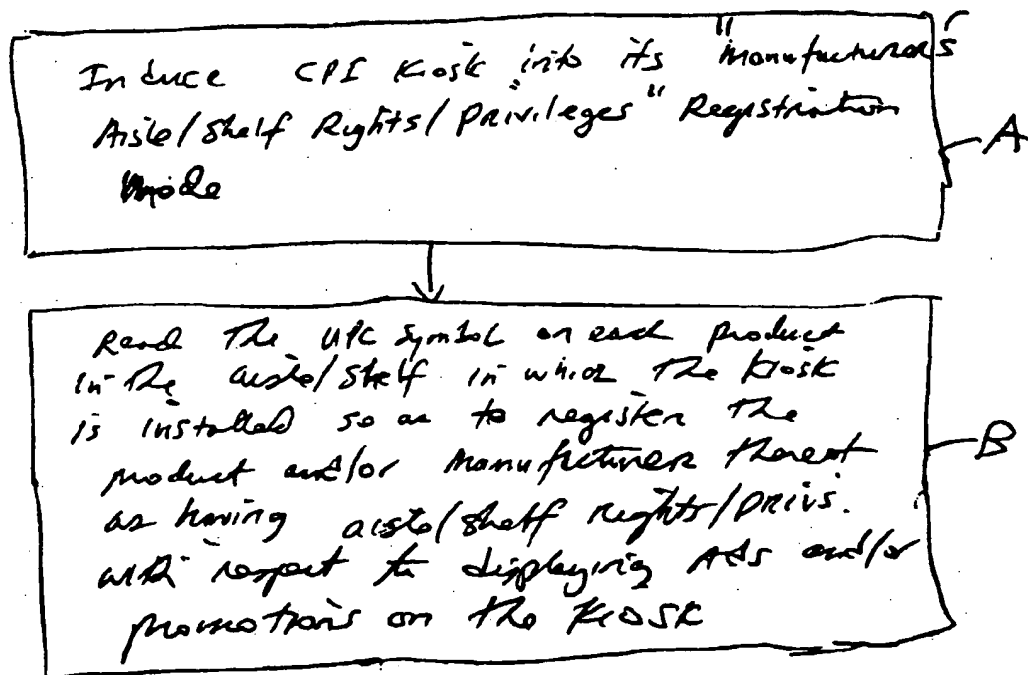 Induce CPI Kiosk into its "Manufacturers'
Aisle/Shelf Rights/Privileges" Registration
Mode
A
Read The UPC Symbol on each product
in The aisle/shelf in which The Kiosk
is installed so as to register The
product and/or Manufacturer thereof
as having aisle/shelf rights/privs.
with respect to displaying Ads and/or
promotions on The Kiosk
B